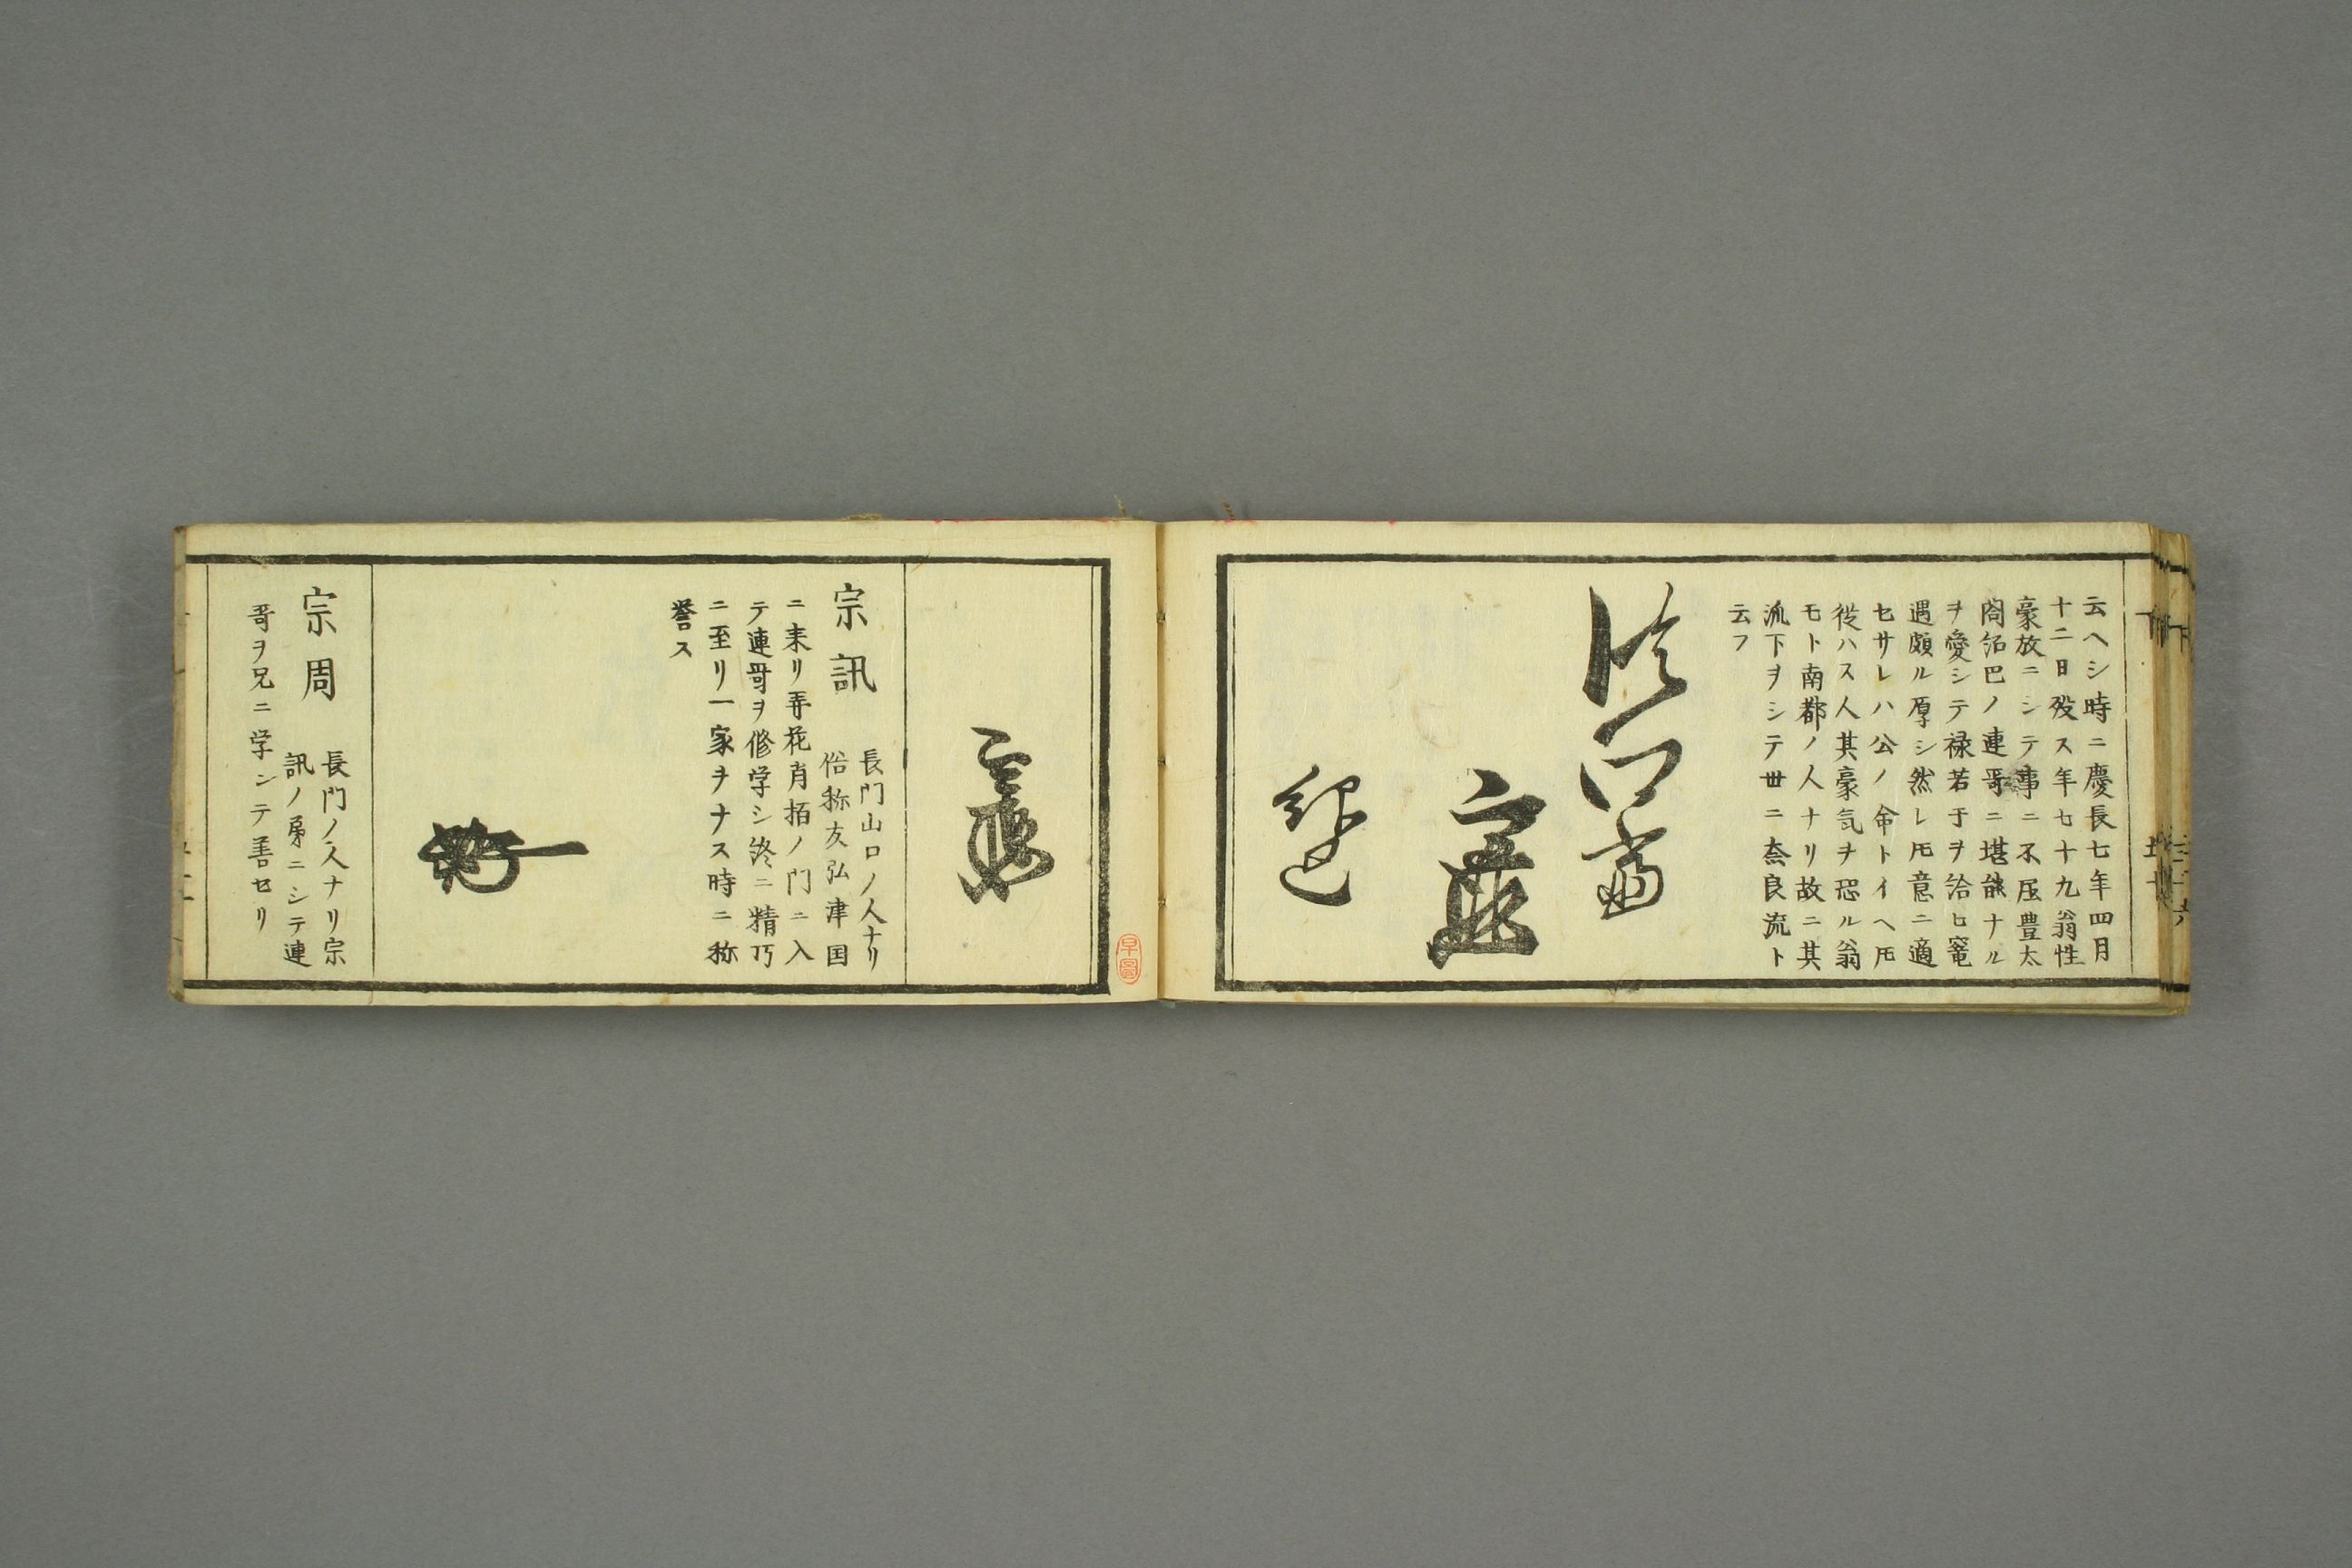 云ヘシ時ニ慶長七年四月
十二日歿ス年七十九翁性
豪放ニシテ事ニ不屈豊太
閤紹巴ノ連哥ニ堪能ナル
ヲ愛シテ禄若于ヲ給ヒ寵
遇頗ル厚シ然レ𪜈意ニ適
セサレハ公ノ命トイヘ𪜈
従ハス人其豪気ヲ恐ル翁
モト南都ノ人ナリ故ニ其
流下ヲシテ世ニ奈良流ト
云フ
紹巴
宗訊
長門山口ノ人ナリ
俗称友弘津国
ニ来リ弄花肖栢ノ門ニ入
テ連哥ヲ修学シ終ニ精巧
ニ至リ一家ヲナス時ニ称
誉ス
宗周
長門ノ人ナリ宗
訊ノ弟ニシテ連
哥ヲ兄ニ学ンテ善セリ